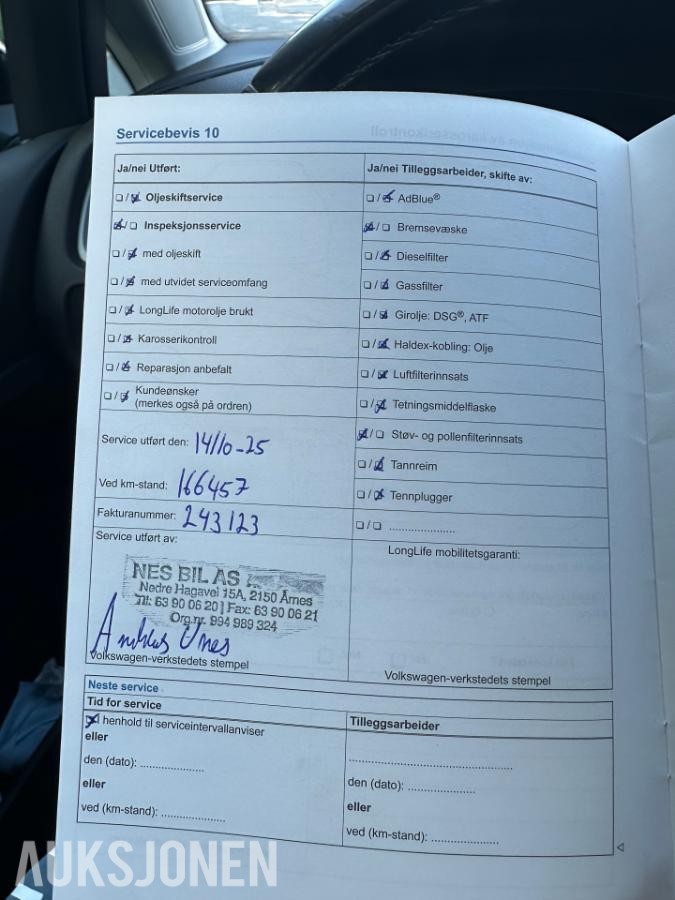 Servicebevis 10
Ja/nei Utført:
☐/☑ Oljeskiftservice
☑/☐ Inspeksjonsservice
☐/☑ med oljeskift
☐/☑ med utvidet serviceomfang
☐/☑ LongLife motorolje brukt
☐/☑ Karosserikontroll
☐/☑ Reparasjon anbefalt
☐/☑ Kundeønsker
(merkes også på ordren)
Service utført den: 14/10-25
Ved km-stand: 166457
Fakturanummer: 243123
Service utført av:
NES BIL AS
Nedre Hagavei 15A, 2150 Årnes
Tlf: 63 90 06 20 | Fax: 63 90 06 21
Org.nr. 994 989 324
Volkswagen-verkstedets stempel
Ja/nei Tilleggsarbeider, skifte av:
☐/☑ AdBlue®
☑/☐ Bremsevæske
☐/☑ Dieselfilter
☐/☑ Gassfilter
☐/☑ Girolje: DSG®, ATF
☐/☑ Haldex-kobling: Olje
☐/☑ Luftfilterinnsats
☐/☑ Tetningsmiddelflaske
☑/☐ Støv- og pollenfilterinnsats
☐/☑ Tannreim
☐/☑ Tennplugger
☐/☐ .....................
LongLife mobilitetsgaranti:
Volkswagen-verkstedets stempel
Neste service
Tid for service
☒ henhold til serviceintervallanviser
eller
den (dato): .....................
eller
ved (km-stand): .....................
Tilleggsarbeider
.....................................................
den (dato): ......................
eller
ved (km-stand): ......................
AUKSJONEN